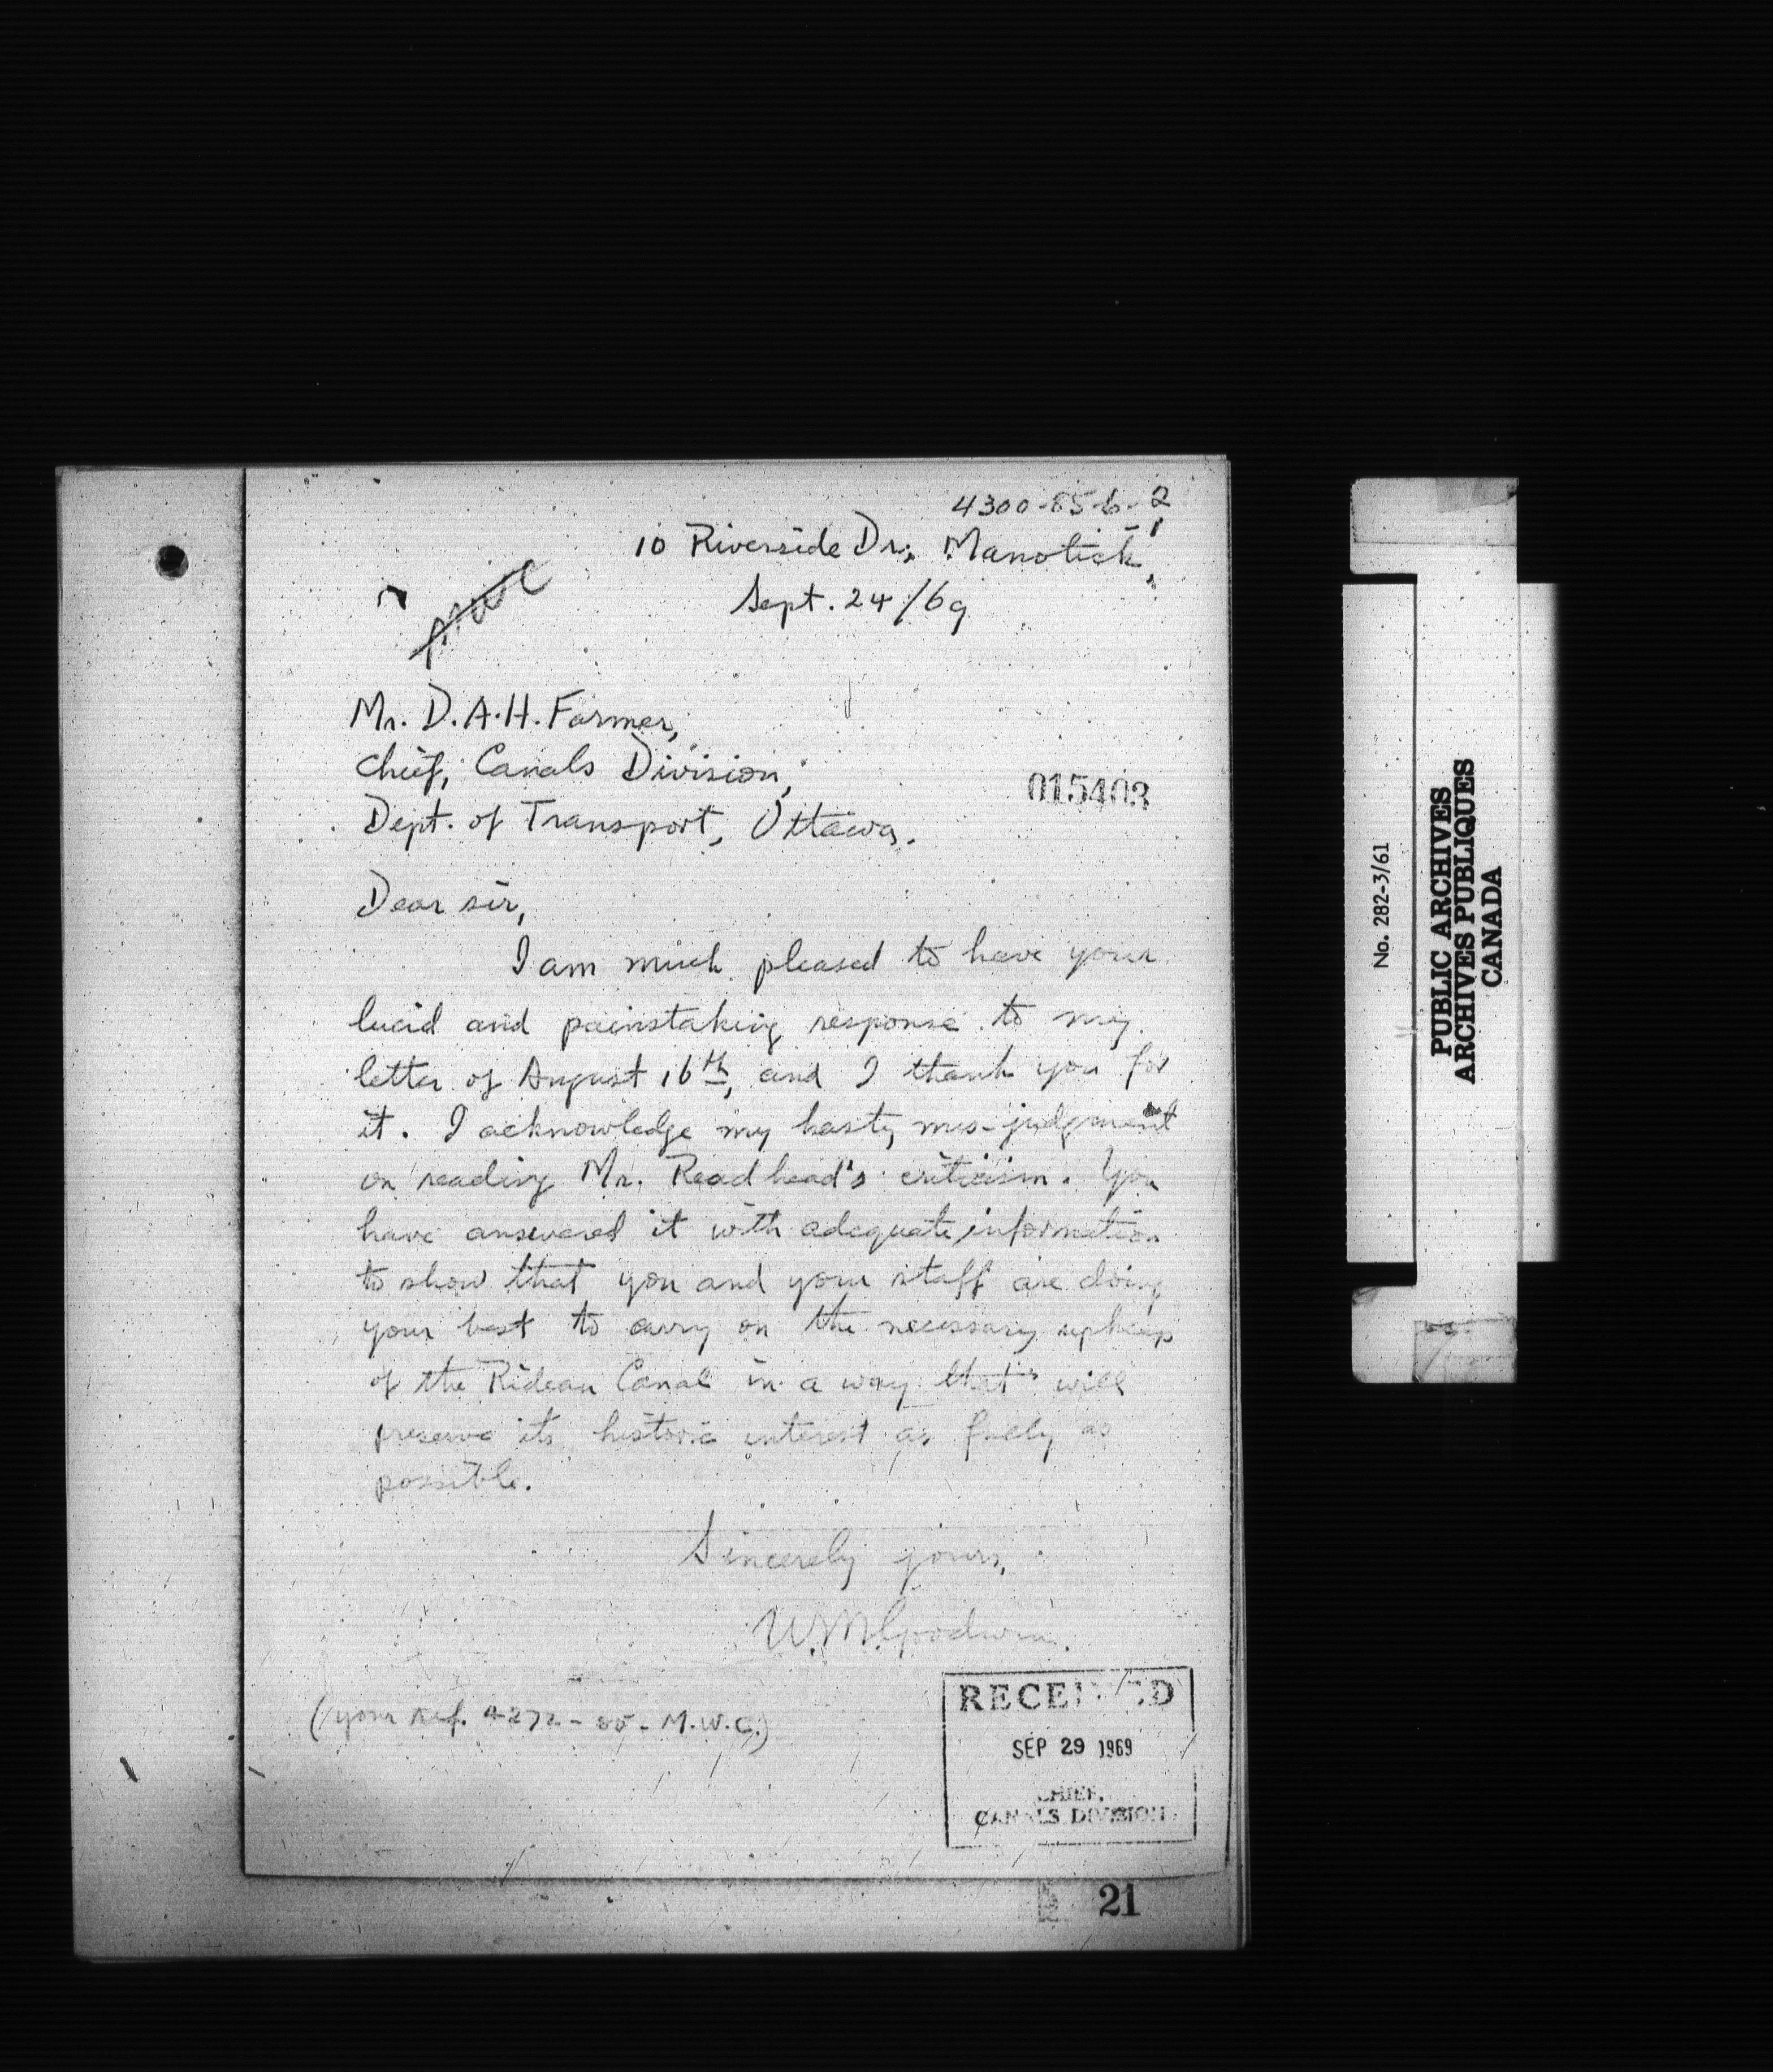 4300-85-6-2
10 Riverside Dr., Manotick,
Sept. 24/69
Mr. D.A.H. Farmer,
Chief, Canals Division,
015403
Dept. of Transport, Ottawa.
Dear sir,
I am much pleased to have your
lucid and painstaking response to my
letter of August 16th, and I thank you for
it. I acknowledge my hasty mis-judgment
on reading Mr. Readhead's criticism. You
have answered it with adequate information
to show that you and your staff are doing
your best to carry on the necessary upkeep
of the Rideau Canal in a way that will
preserve its historic interest as fully as
possible.
Sincerely yours,
W.M. Goodwin.
(your Ref. 4272-85-M.W.C.)
RECEIVED
SEP 29 1969
CHIEF,
CANALS DIVISION
21
No. 282-3/61
PUBLIC ARCHIVES
ARCHIVES PUBLIQUES
CANADA